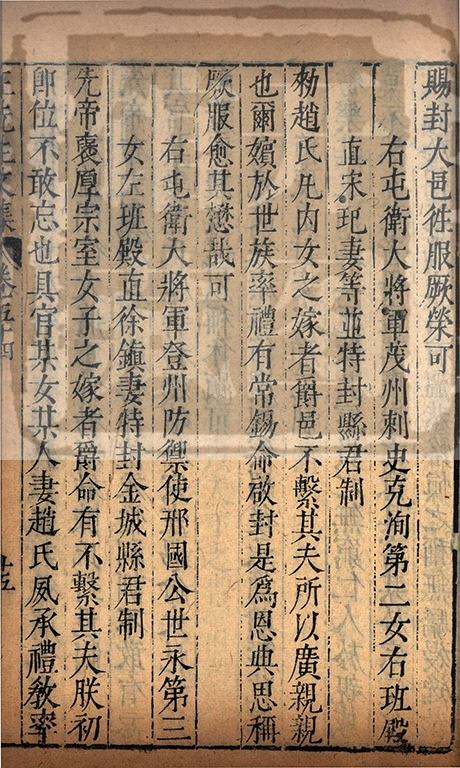 賜封大邑徃服厥榮可
右屯衛大將軍茂州刺史克洵第二女右班殿
直宋玘妻等並特封縣君制
勑趙氏凡內女之嫁者爵邑不繫其夫所以廣親親
也爾嬪於世族率禮有常錫命啟封是為恩典思稱
厥服愈其懋哉可
右屯衛大將軍登州防禦使邢國公世永第三
女左班殿直徐鎮妻特封金城縣君制
先帝褒厚宗室女子之嫁者爵命有不繫其夫朕初
即位不敢忘也具官某女某人妻趙氏夙承禮教率
王先生文集 卷五十四 十五